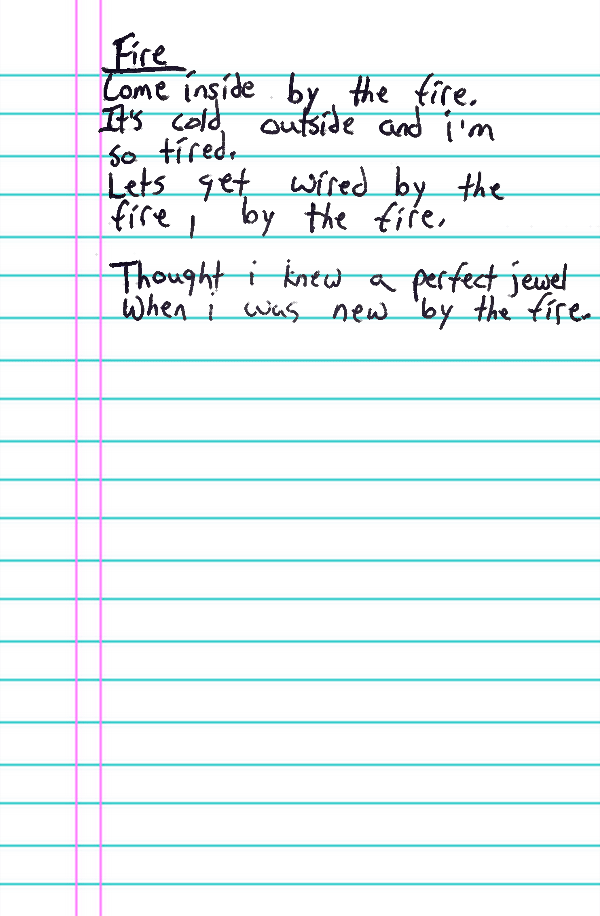 Fire
Come inside by the fire.
It's cold outside and i'm
so tired.
Lets get wired by the
fire, by the fire.
Thought i knew a perfect jewel
When i was new by the fire.